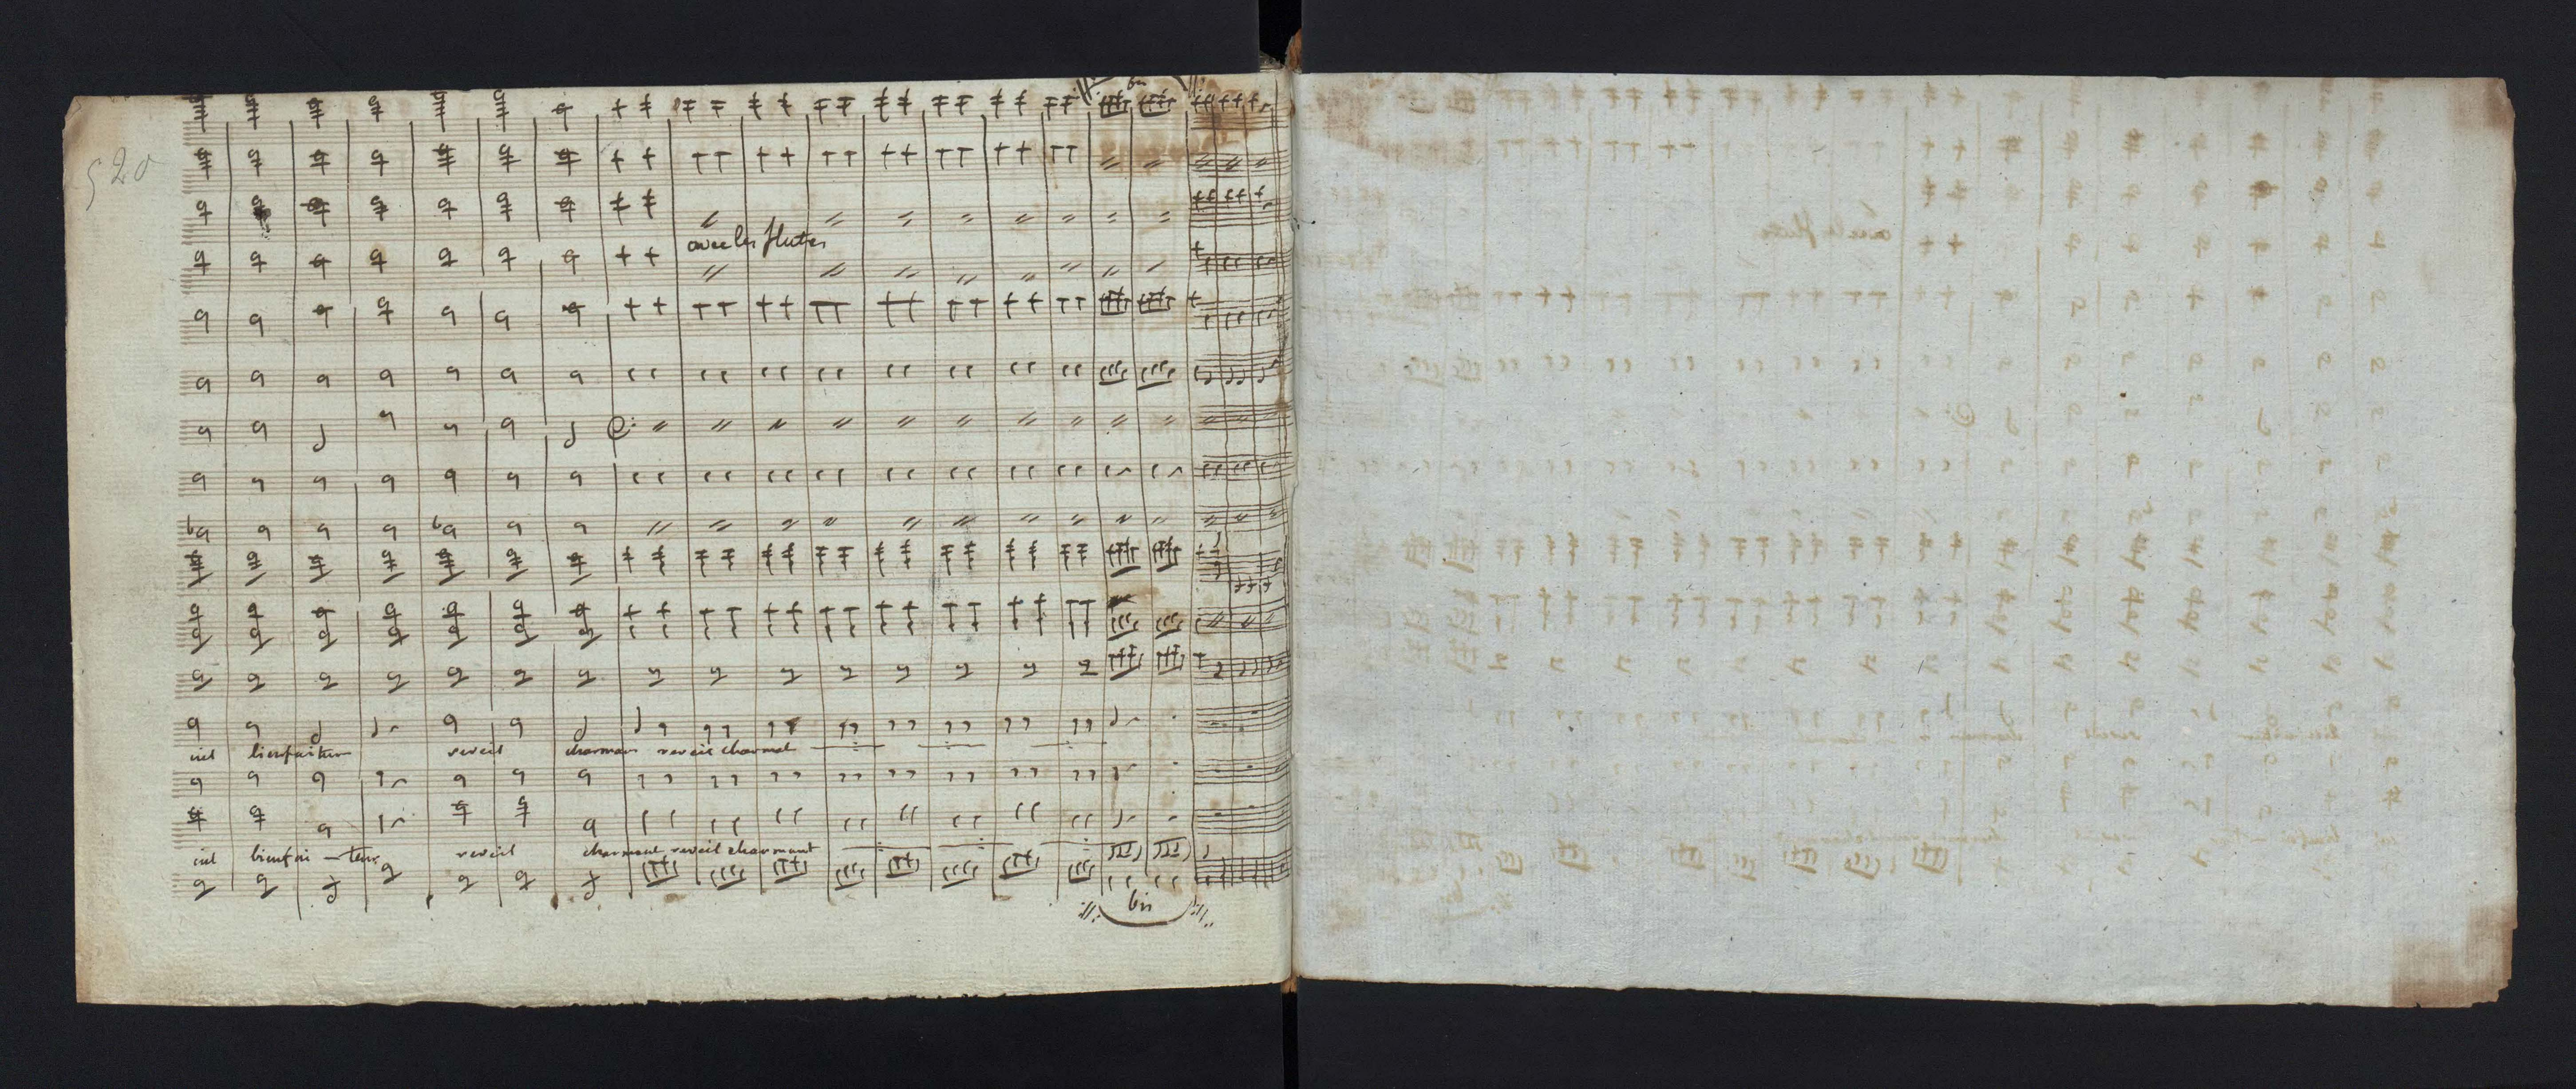 bis
520
avec les flutes
ciel bienfaiteur reveil charman reveil charmat
ciel bienfai - teur reveil charmant reveil charmant
bis